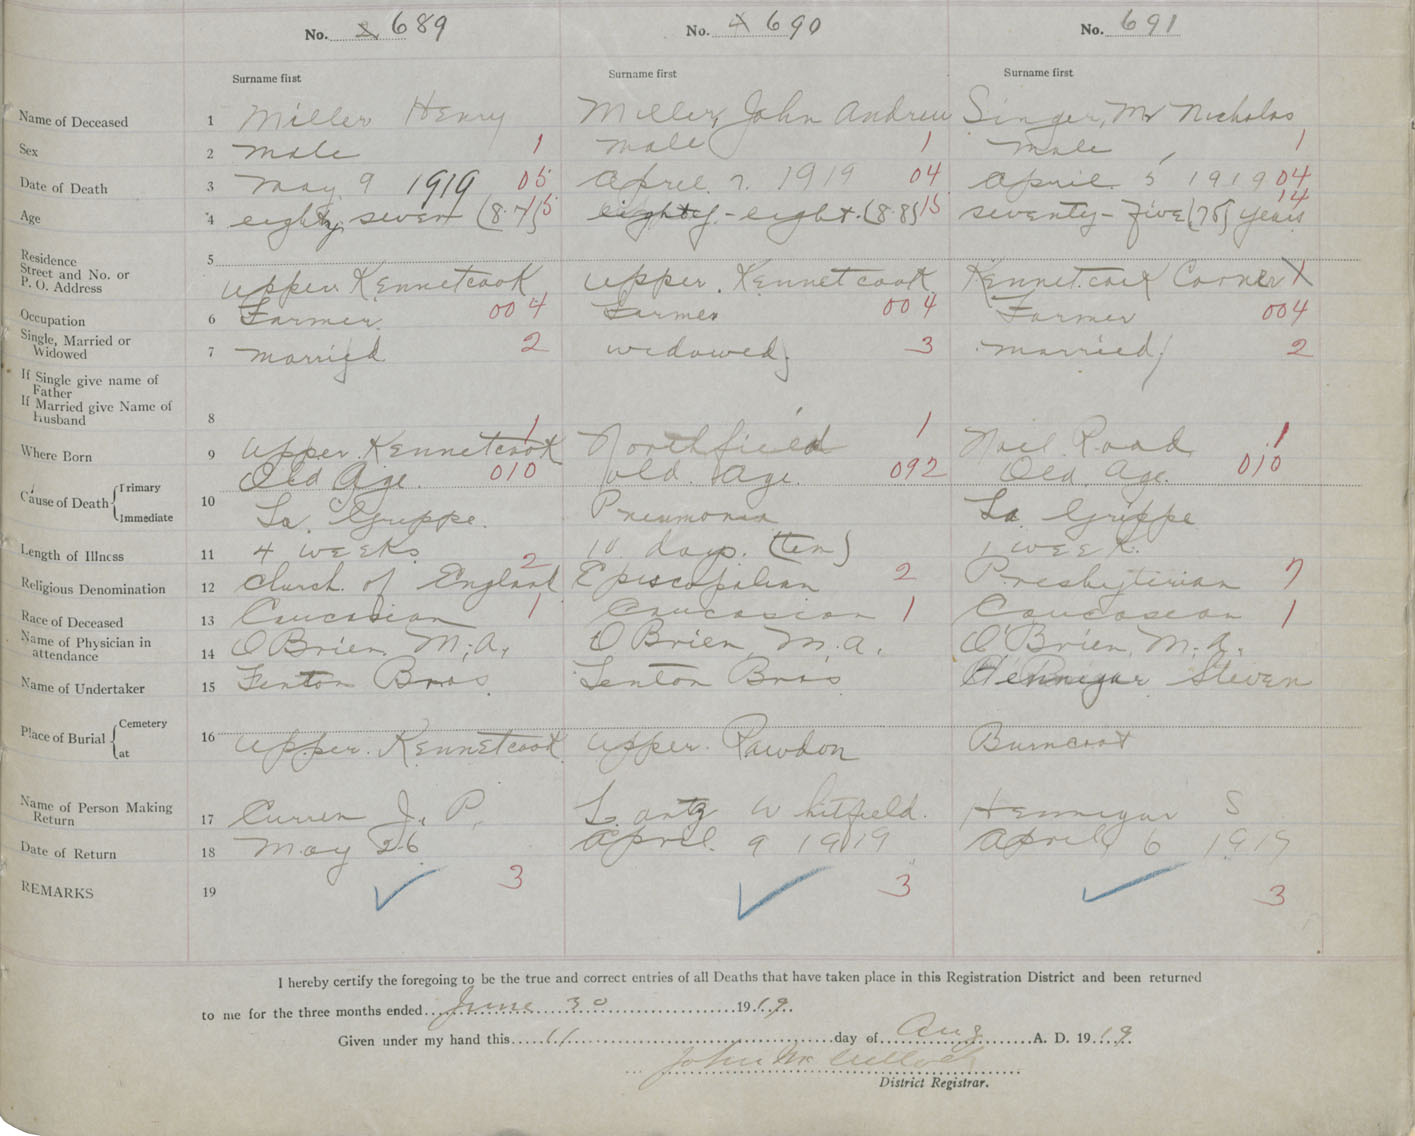 No. 689 No. 690 No. 691
Surname first Surname first Surname first
Name of Deceased 1 Miller Henry Miller, John Andrew Singer, Mr Nicholas
Sex 2 male 1 male 1 male 1
Date of Death 3 May 9 1919 05 April 7. 1919 04 April 5 1919 04
Age 4 eighty seven (87) 15 eighty-eight (88) 15 seventy-five (75) years 14
Residence
Street and No. or
P. O. Address 5 Upper Kennetcook Upper. Kennetcook Kennetcook Corner 1
Occupation 6 Farmer 004 Farmer 004 Farmer 004
Single, Married or
Widowed 7 married 2 widowed 3 married 2
If Single give name of
Father
If Married give Name of
Husband 8
Where Born 9 Upper Kennetcook 1 Northfield 1 Noel Road 1
Cause of Death Primary 10 Old Age. 010 old age. 092 Old Age. 010
Immediate La Grippe. Pneumonia La Grippe
Length of Illness 11 4 weeks 10 days. (ten) 1 week.
Religious Denomination 12 Church of England 2 Episcopalian 2 Presbyterian 7
Race of Deceased 13 Caucasian 1 Caucasian 1 Caucasean 1
Name of Physician in
attendance 14 O'Brien, M.A. O'Brien, M.A. O'Brien, M.A.
Name of Undertaker 15 Fenton Bros. Fenton Bros Hennigar Steven
Place of Burial Cemetery 16
at Upper Kennetcook Upper. Rawdon Burncoat
Name of Person Making
Return 17 Curren J. P. Lantz Whitfield. Hennigar S
Date of Return 18 May 26 April 9 1919 April 6 1919
REMARKS 19 3 3 3
I hereby certify the foregoing to be the true and correct entries of all Deaths that have taken place in this Registration District and been returned
to me for the three months ended June 30 1919.
Given under my hand this 11 day of Aug A. D. 1919.
John McCulloch
District Registrar.